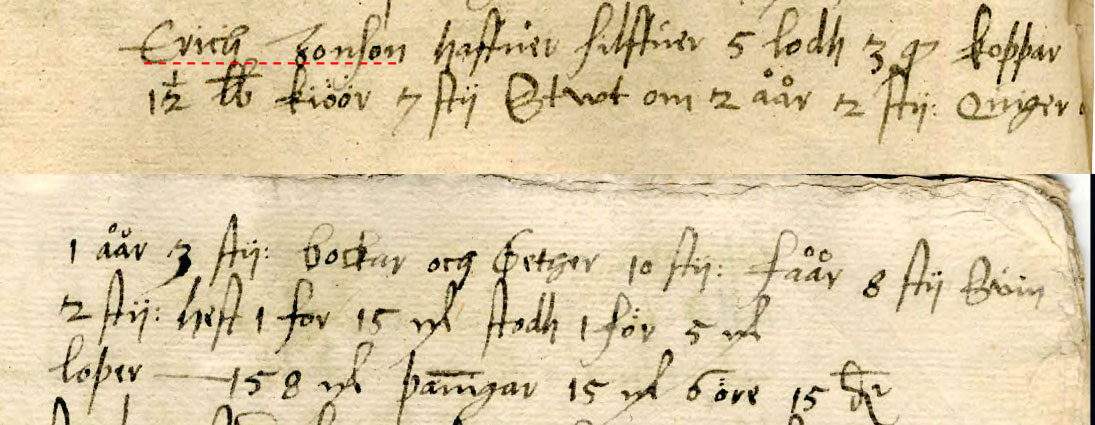 Erich Jonson haffuer silffuer 5 lodh 3 q koppar
1½ lb kiöör 7 stÿ Stwt om 2 åår 2 stÿ: Quiger
1 åår 3 stÿ: bockar ocg Getger 10 stÿ: fåår 8 stÿ Suin
2 stÿ: hest 1 for 15 mk stodh 1 för 5 mk
löper — 158 mk pämgar 15 mk 6 öre 15